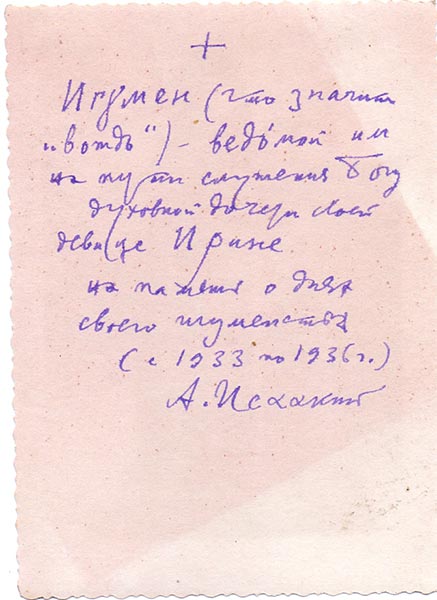 +
Игумен (что значит
„вождь“) – ведо́мой им
на пути служения Богу
духовной дочери своей
девице Ирине
на память о днях
своего игуменства
(с 1933 по 1936 г.)
А. Исаакий